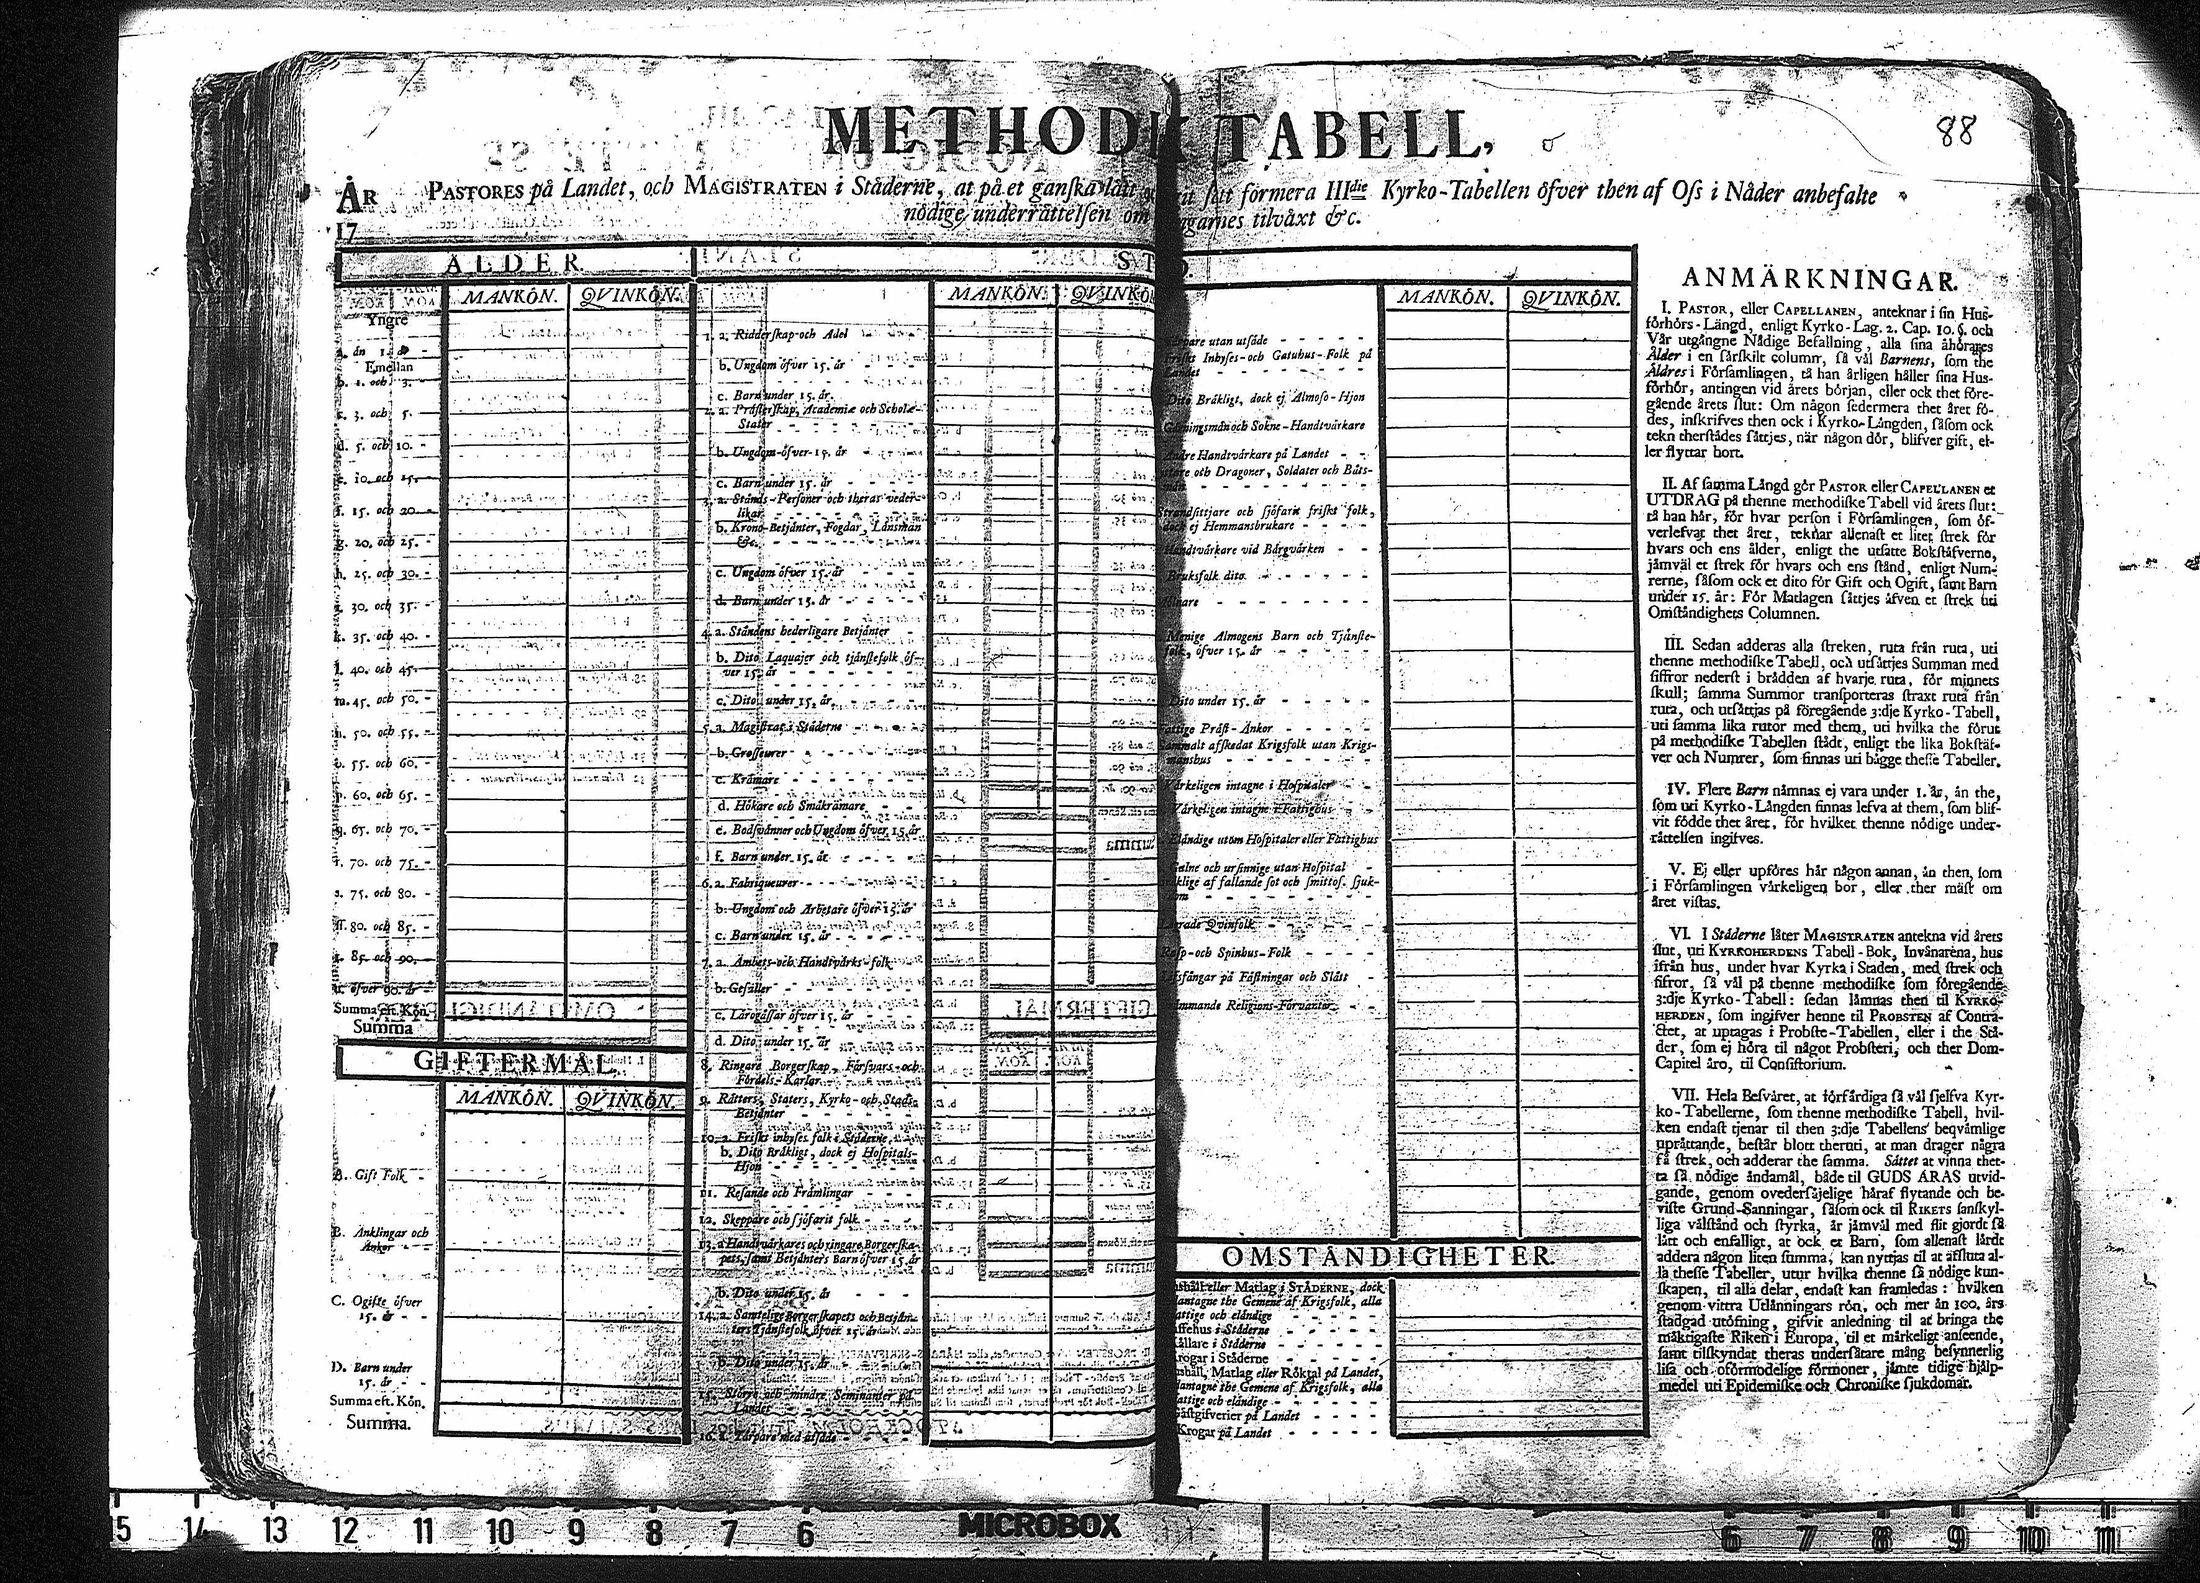 METHODI TABELL,
88
ÅR
17
PASTORES på Landet, och MAGISTRATEN i Städerne, at på et ganſka lätt ſätt formera IIIdie Kyrko-Tabellen öfver then af Oſs i Nåder anbefalte
nödige underrättelſen om tilväxt &c.
ÅLDER
MANKÖN. QVINKÖN.
Yngre
än 1. år -
Emellan
b. 1. och 3.
c. 3. och 5.
d. 5. och 10.
e. 10. och 15.
f. 15. och 20.
g. 20. och 25.
h. 25. och 30. -
i. 30. och 35. -
k. 35. och 40. -
l. 40. och 45.
m. 45. och 50. -
n. 50. och 55. -
o. 55. och 60. -
p. 60. och 65. -
q. 65. och 70. -
r. 70. och 75. -
s. 75. och 80. -
ſſ. 80. och 85. -
t. 85. och 90. -
u. öfver 90. år -
Summa eft. Kön.
Summa
GIFTERMÅL.
MANKÖN. QVINKÖN.
A. Gift Folk -
B. Änklingar och
Änkor - -
C. Ogifte öfver
15. år - -
D. Barn under
15. år - -
Summa eft. Kön.
Summa.
MANKÖN. QVINKÖN.
1. a. Ridderſkap och Adel
b. Ungdom öfver 15. år
c. Barn under 15. år.
2. a. Präſterſkap, Academiæ och Scholæ-
Stater
b. Ungdom öfver 15. år
c. Barn under 15. år
3. a. Stånds-Perſoner och theras veder-
likar
b. Krono-Betjänter, Fogdar, Länsmän
&c.
c. Ungdom öfver 15. år
d. Barn under 15. år
4. a. Ståndens hederligare Betjänter
b. Dito Laquajer och tjänſtefolk öf-
ver 15. år
c. Dito under 15. år,
5. a. Magiſtrat i Städerne
b. Groſſeurer
c. Krämare
d. Hökare och Småkrämare
e. Bodſvänner och Ungdom öfver 15. år
f. Barn under 15. år
6. a. Fabriqueurer
b. Ungdom och Arbetare öfver 15. år
c. Barn under 15. år
7. a. Ämbets- och Handtvärks-folk
b. Geſäller
c. Lärogåſſar öfver 15. år
d. Dito under 15. år
8. Ringare Borgerſkap, Förſvars- och
Fördels-Karlar
9. Rätters, Staters, Kyrko- och Stads-
Betjänter
10. a. Friſkt inhyſes folk i Städerne,
b. Dito Bräkligt, dock ej Hoſpitals-
Hjon
11. Reſande och Främlingar
12. Skeppare och ſjöfarit folk
13. a. Handtvärkares och ringare Borgerſka-
pets, ſamt Betjänters Barn öfver 15. år
b. Dito under 15. år
14. a. Samtelige Borgerſkapets och Betjän-
ters Tjänſtefolk öfver 15. år
b. Dito under 15. år
15. Större och mindre Seminanter på
Landet
16. Torpare med utſäde
MANKÖN. QVINKÖN.
utan utſäde
Inhyſes- och Gatuhus-Folk på
Dito Bräkligt, dock ej Almoſo-Hjon
och Sokne-Handtvärkare
Handtvärkare på Landet
och Dragoner, Soldater och Båts-
och ſjöfarit friſkt folk,
dock ej Hemmansbrukare
Handtvärkare vid Bärgvärken
Bruksfolk dito
Menige Almogens Barn och Tjänſte-
folk, öfver 15. år
Dito under 15. år
Präſt-Änkor
afſkedat Krigsfolk utan Krigs-
manshus
Värkeligen intagne i Hoſpitaler
Värkeligen intagne i Fattighus
Eländige utom Hoſpitaler eller Fattighus
och urſinnige utan Hoſpital
af fallande ſot och ſmittoſ. ſjuk-
dom
Qvinfolk
Raſp- och Spinhus-Folk
på Fäſtningar och Slått
Religions-Förvanter
OMSTÄNDIGHETER.
eller Matlag i STÄDERNE, dock
the Gemene af Krigsfolk, alla
och eländige
i Städerne
Källare i Städerne
Krogar i Städerne
Matlag eller Röktal på Landet,
the Gemene af Krigsfolk, alla
och eländige
Gäſtgifverier på Landet
Krogar på Landet
ANMÄRKNINGAR.
I. PASTOR, eller CAPELLANEN, anteknar i ſin Hus-
förhörs-Längd, enligt Kyrko-Lag. 2. Cap. 10. §. och
Vår utgångne Nådige Befallning, alla ſina åhörares
Ålder i en ſärſkilt column, ſå väl Barnens, ſom the
Äldres i Förſamlingen, tå han årligen håller ſina Hus-
förhör, antingen vid årets början, eller ock thet före-
gående årets ſlut: Om någon ſedermera thet året fö-
des, inſkrifves then ock i Kyrko-Längden, ſåſom ock
tekn therſtädes ſättjes, när någon dör, blifver gift, el-
ler flyttar bort.
II. Af ſamma Längd gör PASTOR eller CAPELLANEN et
UTDRAG på thenne methodiſke Tabell vid årets ſlut:
tå han här, för hvar perſon i Förſamlingen, ſom öf-
verlefvat thet året, teknar allenaſt et litet ſtrek för
hvars och ens ålder, enligt the utſatte Bokſtäfverne,
jämväl et ſtrek för hvars och ens ſtånd, enligt Num-
rerne, ſåſom ock et dito för Gift och Ogift, ſamt Barn
under 15. år: För Matlagen ſättjes äfven et ſtrek uti
Omſtändighets Columnen.
III. Sedan adderas alla ſtreken, ruta från ruta, uti
thenne methodiſke Tabell, och utſättjes Summan med
ſiffror nederſt i brädden af hvarje ruta, för minnets
ſkull; ſamma Summor tranſporteras ſtraxt ruta från
ruta, och utſättjas på föregående 3:dje Kyrko-Tabell,
uti ſamma lika rutor med them, uti hvilka the förut
på methodiſke Tabellen ſtådt, enligt the lika Bokſtäf-
ver och Numrer, ſom finnas uti bägge theſſe Tabeller.
IV. Flere Barn nämnas ej vara under 1. år, än the,
ſom uti Kyrko-Längden finnas lefva at them, ſom blif-
vit födde thet året, för hvilket thenne nödige under-
rättelſen ingifves.
V. Ej eller upföres här någon annan, än then, ſom
i Förſamlingen värkeligen bor, eller ther mäſt om
året viſtas.
VI. I Städerne låter MAGISTRATEN antekna vid årets
ſlut, uti KYRKOHERDENS Tabell-Bok, Invånarena, hus
ifrån hus, under hvar Kyrka i Staden, med ſtrek och
ſifror, ſå väl på thenne methodiſke ſom föregående
3:dje Kyrko-Tabell: ſedan lämnas then til KYRKO-
HERDEN, ſom ingifver henne til PROBSTEN af Contra-
ctet, at uptagas i Probſte-Tabellen, eller i the Stä-
der, ſom ej höra til något Probſteri, och ther Dom-
Capitel äro, til Conſiſtorium.
VII. Hela Beſväret, at förfärdiga ſå väl ſjelfva Kyr-
ko-Tabellerne, ſom thenne methodiſke Tabell, hvil-
ken endaſt tjenar til then 3:dje Tabellens beqvämlige
uprättande, beſtår blott theruti, at man drager några
få ſtrek, och adderar the ſamma. Sättet at vinna thet-
ta ſå nödige ändamål, både til GUDS ÄRAS utvid-
gande, genom overderſäjelige häraf flytande och be-
viſte Grund-Sanningar, ſåſom ock til RIKETS ſanſkyl-
liga välſtånd och ſtyrka, är jämväl med flit gjordt ſå
lätt och enfalligt, at ock et Barn, ſom allenaſt lärdt
addera någon liten ſumma, kan nyttjas til at afſluta al-
la theſſe Tabeller, utur hvilka thenne ſå nödige kun-
ſkapen, til alla delar, endaſt kan framledas: hvilken
genom vittra Utlänningars rön, och mer än 100. års
ſtadgad utöfning, gifvit anledning til at bringa the
mäktigaſte Riken i Europa, til et märkeligt anſeende,
ſamt tilſkyndat theras underſåtare mång beſynnerlig
liſa och oförmodelige förmoner, jämte tidige hjälp-
medel uti Epidemiſke och Chroniſke ſjukdomar.
15 14 13 12 11 10 9 8 7 6 MICROBOX 6 7 8 9 10 11